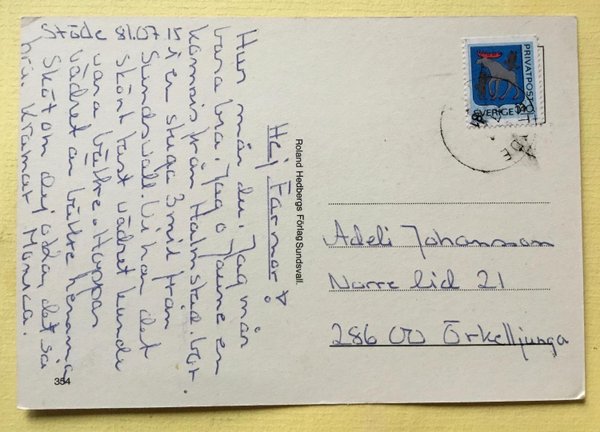 Stöde 81.07.15
Hej Farmor!
Hur mår du? Jag mår
bara bra. Jag o Janne en
kompis från Halmstad bor
i en stuga 3 mil från
Sundsvall. Vi har det
skönt fast vädret kunde
vara bättre. Hoppas
vädret är bättre hemma
Sköt om dej o ha det så
bra. Kramar Monica.
Roland Hedbergs Förlag Sundsvall.
354
PRIVATPOST
SVERIGE
Adeli Johansson
Norre lid 21
286 00 Örkelljunga